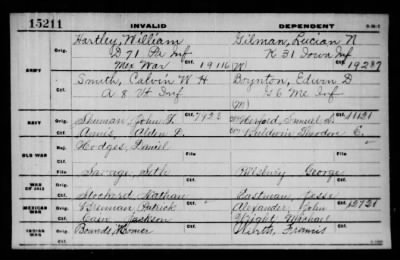 15211
INVALID
DEPENDENT
Hartley, William
Gilman, Lucian N
Orig. D 71 Pa Inf
Orig. K 31 Iowa Inf
Mex War Ctf. 19116
Ctf. 19287
ARMY
Smith, Calvin W H
Boynton, Edwin D
A 8 Vt Inf
G 6 Me Inf
NAVY
Orig. Shuman, John F. Ctf. 7923
Samuel Ctf. 11121
Orig. Amis, Alden P.
Baldwin Theodore E.
OLD WAR
Hodges, Daniel
File
File
Orig. Savage, Seth
George
WAR OF 1812
Ctf.
Ctf.
Stockard, Nathan
Eastman, Jesse
MEXICAN WAR
Orig. Brennan, Patrick Ctf.
Alexander, John Ctf. 12721
Orig. Cain, Jackson
Wright, Michael
INDIAN WAR
Ctf.
Ctf.
Francis